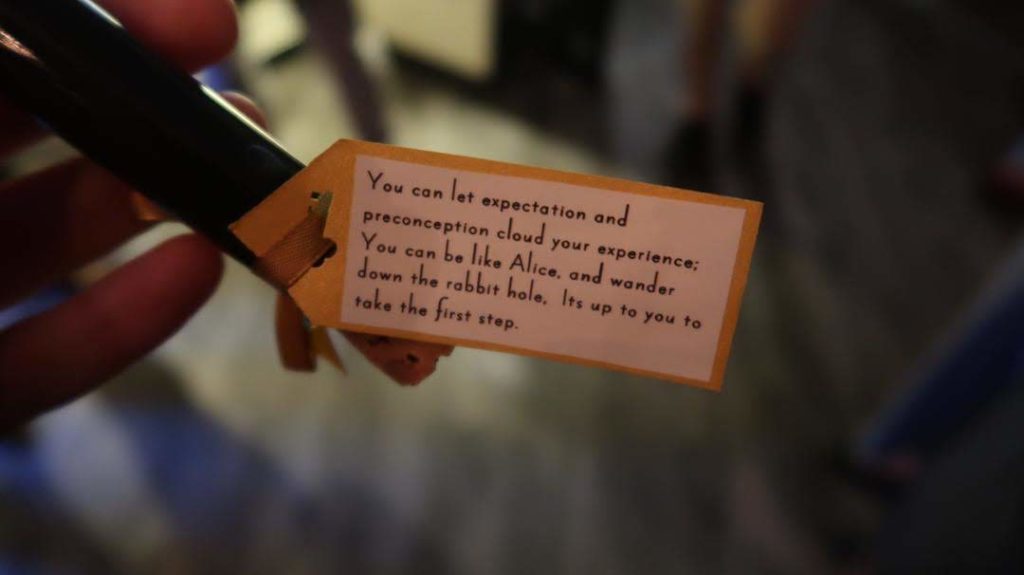 You can let expectation and
preconception cloud your experience;
You can be like Alice, and wander
down the rabbit hole. Its up to you to
take the first step.